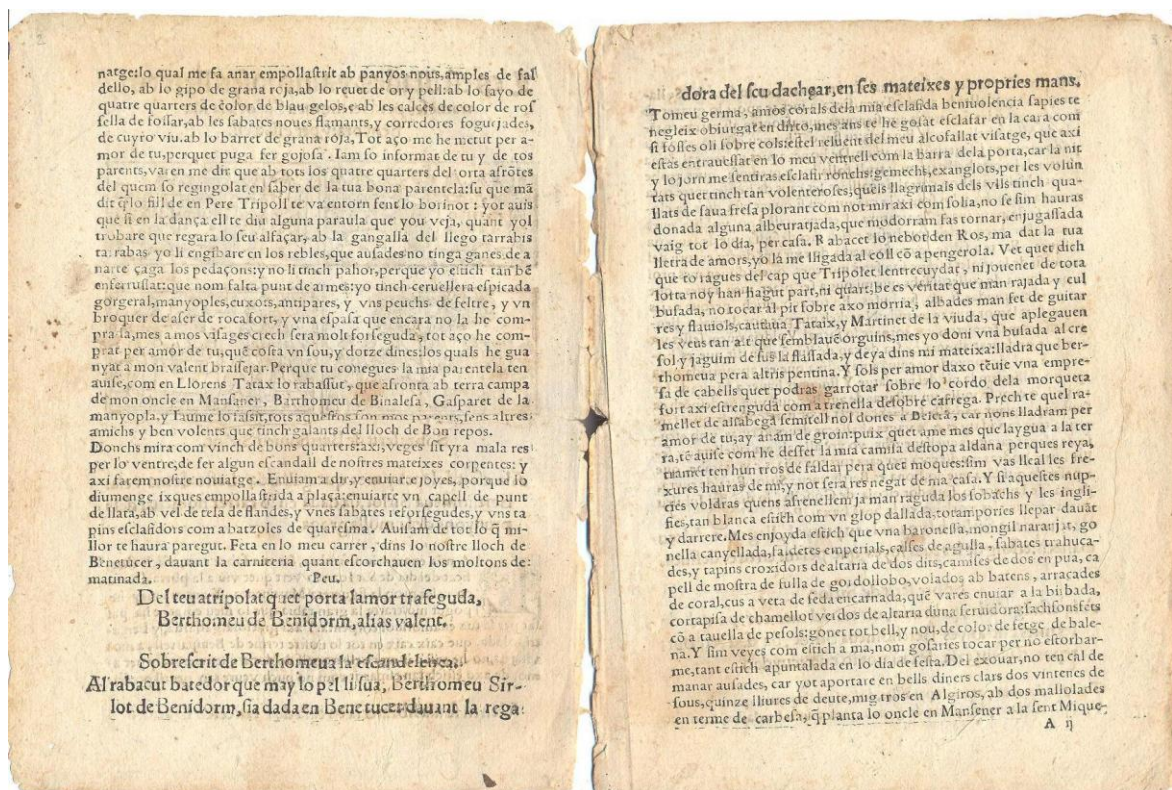 natge:lo qual me fa anar empollaſtrit ab panyos nous,amples de fal
dello, ab lo gipo de grana roja,ab lo reuet de or y pell:ab lo ſayo de
quatre quarters de color de blau gelos,e ab les calces de color de roſ
ſella de foſſar,ab les ſabates noues flamants,y corredores foguejades,
de cuyro viu.ab lo barret de grana roja,Tot aço me he metut per a-
mor de tu,perquet puga fer gojoſa. Iam ſo informat de tu y de tos
parents,varen me dir que ab tots los quatre quarters del orta afrôtes
del quem ſo regingolat en ſaber de la tua bona parentela:ſu que mã
dit q̃ lo fill de en Pere Tripoll te va entorn fent lo borinot : yot auis
que ſi en la dança ell te diu alguna paraula que you veja, quant yol
trobare que regara lo ſeu alfaçar, ab la gangalla del llego tarrabis
tarrabas yo li engibare en los rebles,que auſades no tinga ganes de a
narte çaga los pedaçons:y no li tinch pahor,perque yo eſtich tan bẽ
enferruſſat:que nom falta punt de armes:yo tinch ceruellera eſpicada
gorgeral,manyoples,cuxots,antipares, y vns peuchs de feltre, y vn
broquer de aſer de rocafort, y vna eſpaſa que encara no la he com-
pra ſa,mes a mos viſages crech ſera molt forſeguda, tot aço he com-
prat per amor de tu,quẽ coſta vn ſou,y dotze dines:los quals he gua
nyat a mon valent braſſejar.Perque tu conegues la mia parentela ten
auiſe,com en Llorens Tatax lo rabaſſut, que afronta ab terra campa
de mon oncle en Manſaner, Barthomeu de Binaleſa, Gaſparet de la
manyopla,y Iaume lo iaſſit,tots aqueſtos ſon mos parents,ſens altres
amichs y ben volents que tinch galants del lloch de Bon repos.
Donchs mira com vinch de bons quarters:axi,veges ſit yra mala res
per lo ventre,de fer algun eſcandail de noſtres mateixes corpentes: y
axi farem noſtre nouiatge. Enuiam a dir,y enuiar,e joyes, porque lo
diumenge ixques empollaſtrida a plaça:enuiarte vn capell de punt
de llata,ab vel de tela de flandes,y vnes ſabates reforſegudes,y vns ta
pins eſclafidors com a batzoles de quareſma. Auiſam de tot lo q̃ mi-
llor te haura paregut. Feta en lo meu carrer , dins lo noſtre lloch de
Benetucer, dauant la carniceria quant eſcorchauen los moltons de:
matinada. Peu.
Del teu atripolat quet porta lamor traſeguda,
Berthomeu de Benidorm,alias valent.
Sobreſcrit de Berthomeua la eſcandeleuca.
Al rabaçut batedor que may lo pel li ſua, Berthomeu Sir-
lot de Benidorm,ſia dada en Benetucer dauant la rega-
dora del ſeu dachgar,en ſes mateixes y propries mans.
Tomeu germa, amos corals dela mia eſclafida beniuolencia ſapies te
negleix obiurgat en dirto,mes ans te he goſat eſclafar en la cara com
ſi foſſes oli ſobre cols:eſtel reluent del meu alcofallat viſatge, que axi
eſtas entraueſſat en lo meu ventrell com la barra dela porta,car la nit
y lo jorn me ſentiras eſclafir ronchs:gemechs,exanglots,per les volun
tats quet tinch tan volenteroſes,queis llagrimals dels vlls tinch qua-
llats de ſaua freſa plorant com not mir axi com ſolia,no ſe ſim hauras
donada alguna albeuratjada,que modorram fas tornar, enjugaſſada
vaig tot lo dia, per caſa. Rabacet lo nebot den Ros, ma dat la tua
lletra de amors,yo la me lligada al coll cõ a pengerola. Vet quet dich
que to ragues del cap que Tripolet lentrecuydat , ni jouenet de tota
lorta noy han hagut part,ni quart,be es veritat que man rajada y cul
buſada, no tocar al pit ſobre axo morria, albades man fet de guitar
res y flauiols,cantaua Tataix,y Martinet de la viuda, que aplegauen
les veus tan alt que ſemblauẽ orguins,mes yo doni vna buſada al cre
ſol y jaguim deſus la flaſſada,y deya dins mi mateixa:lladra que ber-
thomeua pera altris pentina.Y ſols per amor daxo tẽuie vna empre-
ſa de cabells quet podras garrotar ſobre lo cordo dela morqueta
fort axi eſtrenguda com a trenella deſobre carrega. Prech te quel ra-
mellet de alfabega ſemitell nol dones a Beleta, car nons lladram per
amor de tu,ay anam de groin:puix quet ame mes que laygua a la ter
ra,te auiſe com he desfet la mia camiſa deſtopa aldana perques reya,
tramet ten hun tros de faldar pera quet moques:ſim vas lleal les fre-
xures hauras de mi,y not ſera res negat de ma caſa. Y ſi aqueſtes nup-
cies voldras quens afrenellem ja man raguda los ſobachs y les ingli-
ſies,tan blanca eſtich com vn glop dallada,totam pories llepar dauãt
y darrere.Mes enjoyda eſtich que vna baronella,mongil naranjat, go
nella canyellada,faldetes emperials,calſes de agulla , ſabates trahuca-
des,y tapins croxidors de altaria de dos dits,camiſes de dos en pua, ca
pell de moſtra de fulla de gordollobo,volados ab batens , arracades
de coral,cus a veta de ſeda encarnada,quẽ vares enuiar a la bibada,
cortapiſa de chamellot verdos de altaria duna ſeruidora:ſachſonſets
cõ a tauella de peſols:gonet tot bell,y nou,de color de fetge de bale-
na.Y ſim veyes com eſtich a ma,nom goſaries tocar per no eſtorbar-
me,tant eſtich apuntalada en lo dia de feſta.Del exouar,no ten cal de
manar auſades, car yot aportare en bells diners clars dos vintenes de
ſous,quinze lliures de deute,mig tros en Algiros, ab dos mallolades
en terme de carbeſa, q̃ planta lo oncle en Manſener a la ſent Mique-
A ij